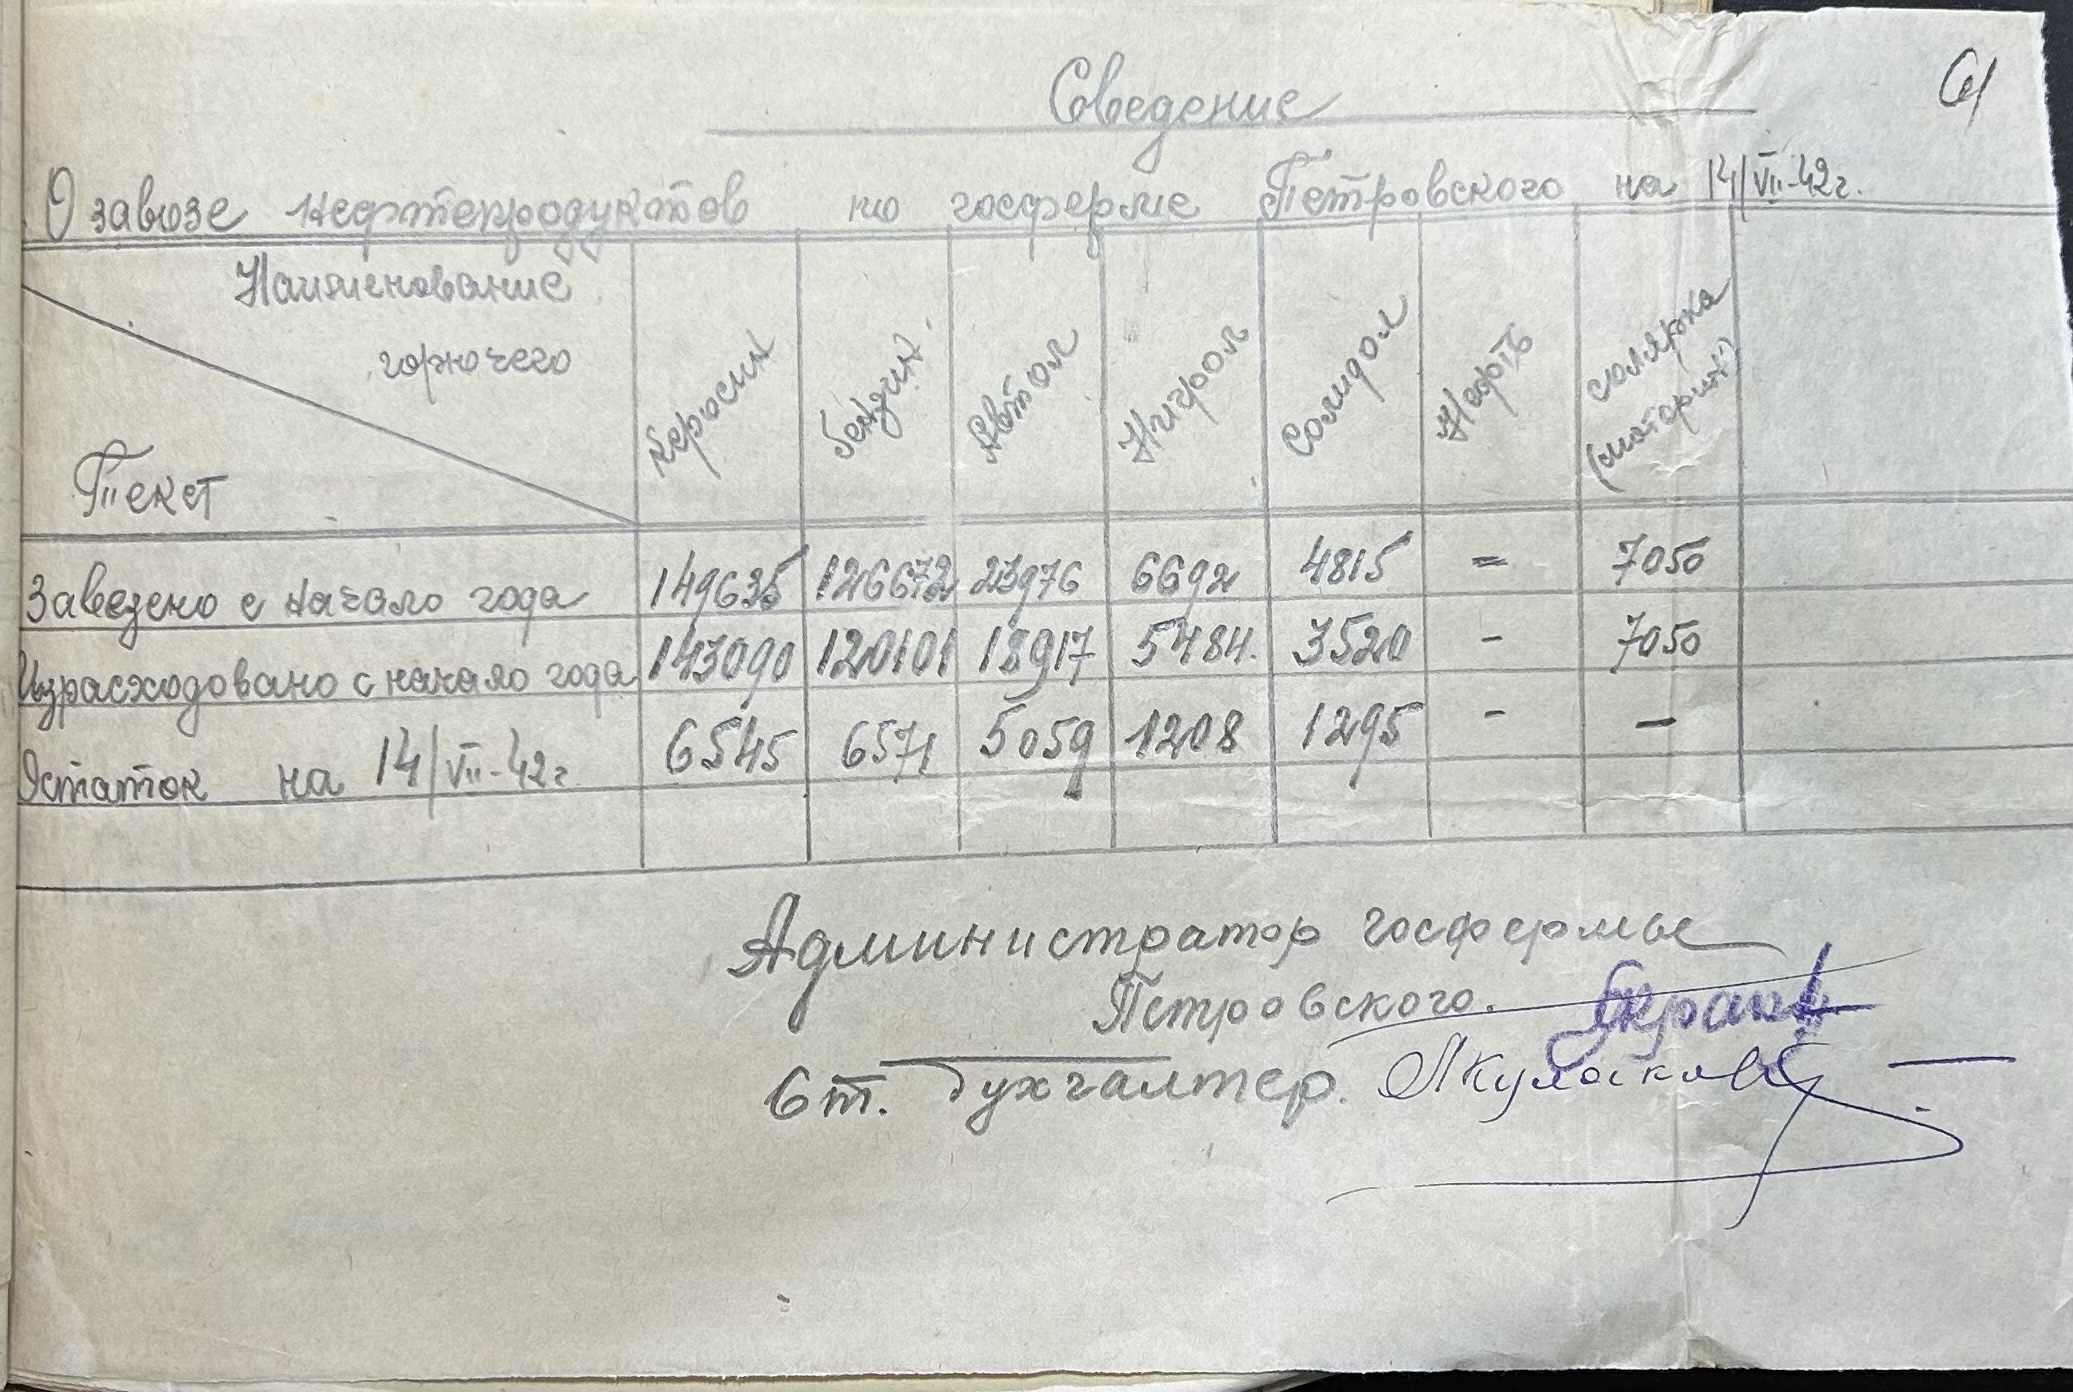 61
Сведение
О завозе нефтепродуктов по госферме Петровского на 14/VII-42г.
Наименование горючего
Текст
Керосин
Бензин
Автол
Нигрол
Солидол
Нефть
солярка (моторин)
Заведено с начало года 149635 126672 23976 6692 4815 = 7050
Израсходовано с начало года 143090 120101 18917 5484. 3520 - 7050
Остаток на 14/VII-42г. 6545 6571 5059 1208 1295 - -
Администратор госфермы
Петровского.
Ст. бухгалтер.